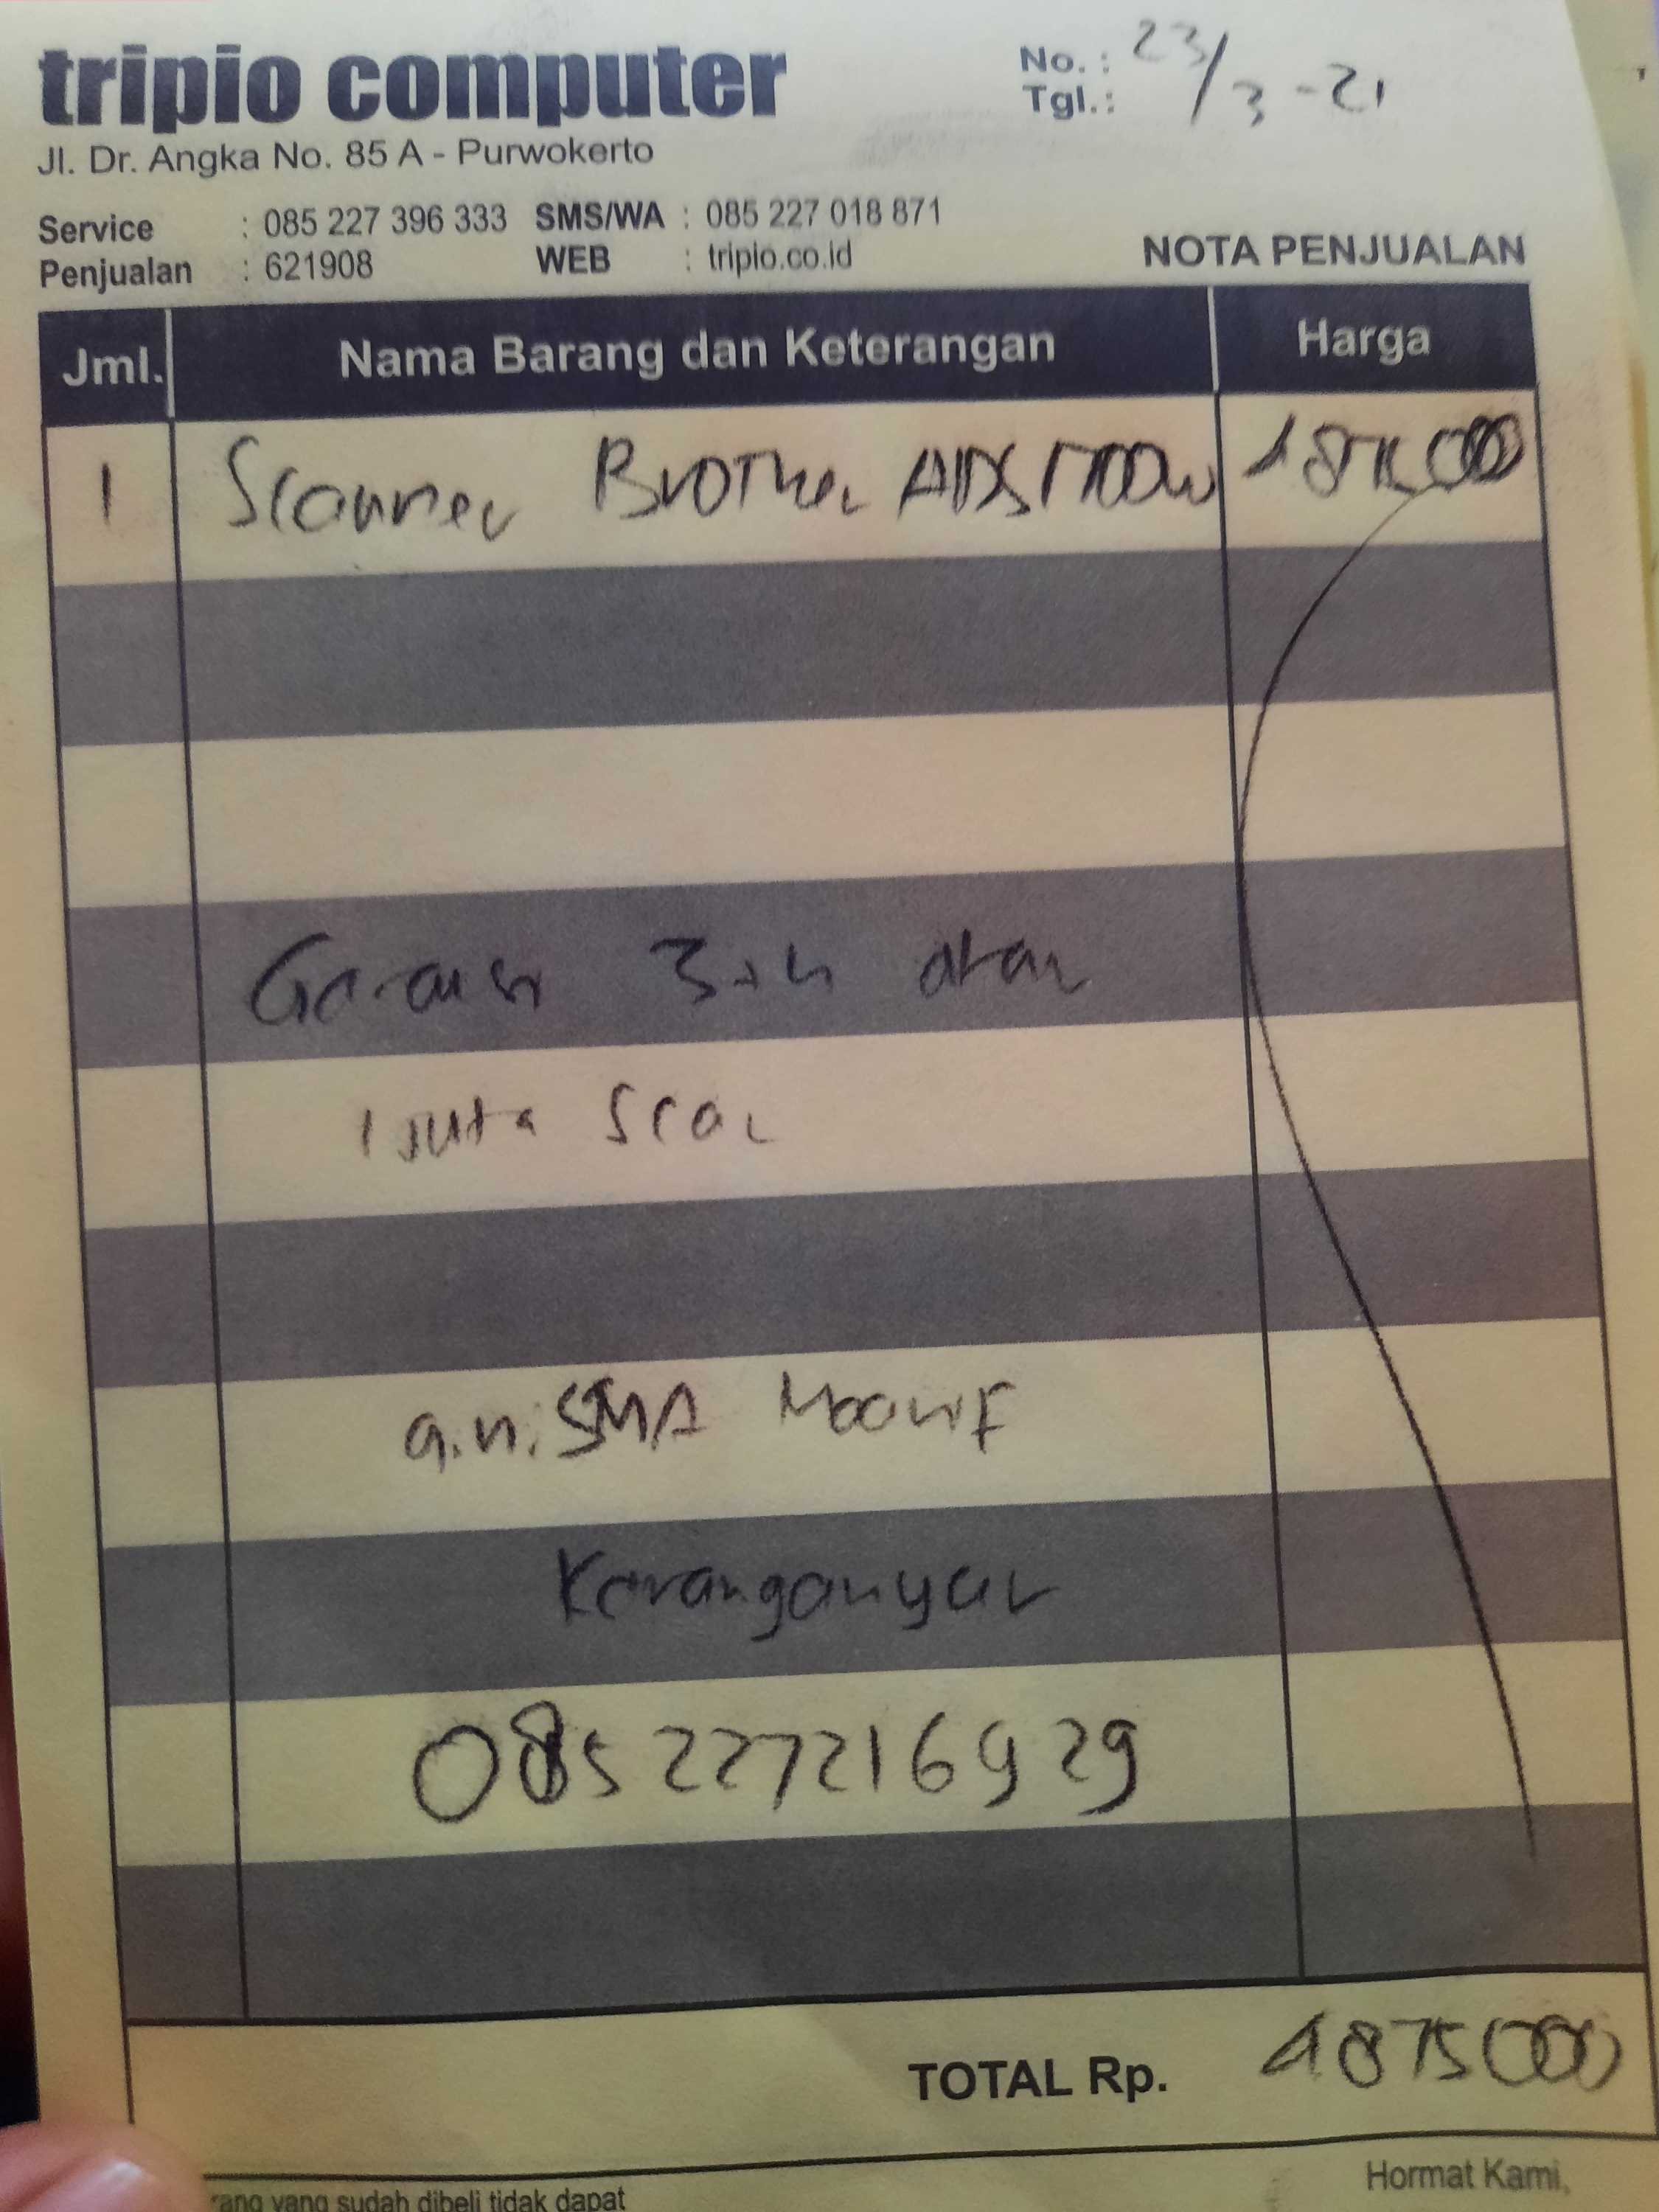 tripio computer
No. : 23/3-21
Tgl. :
Jl. Dr. Angka No. 85 A - Purwokerto
Service : 085 227 396 333 SMS/WA : 085 227 018 871
Penjualan : 621908 WEB : tripio.co.id
NOTA PENJUALAN
Jml. Nama Barang dan Keterangan Harga
1 Scanner Brother ADS1700w
Garansi 3 atau
1 juta Scan
a.n. SMA Maarif
Karanganyar
085227216929
TOTAL Rp. 4875000
Hormat Kami,
yang sudah dibeli tidak dapat